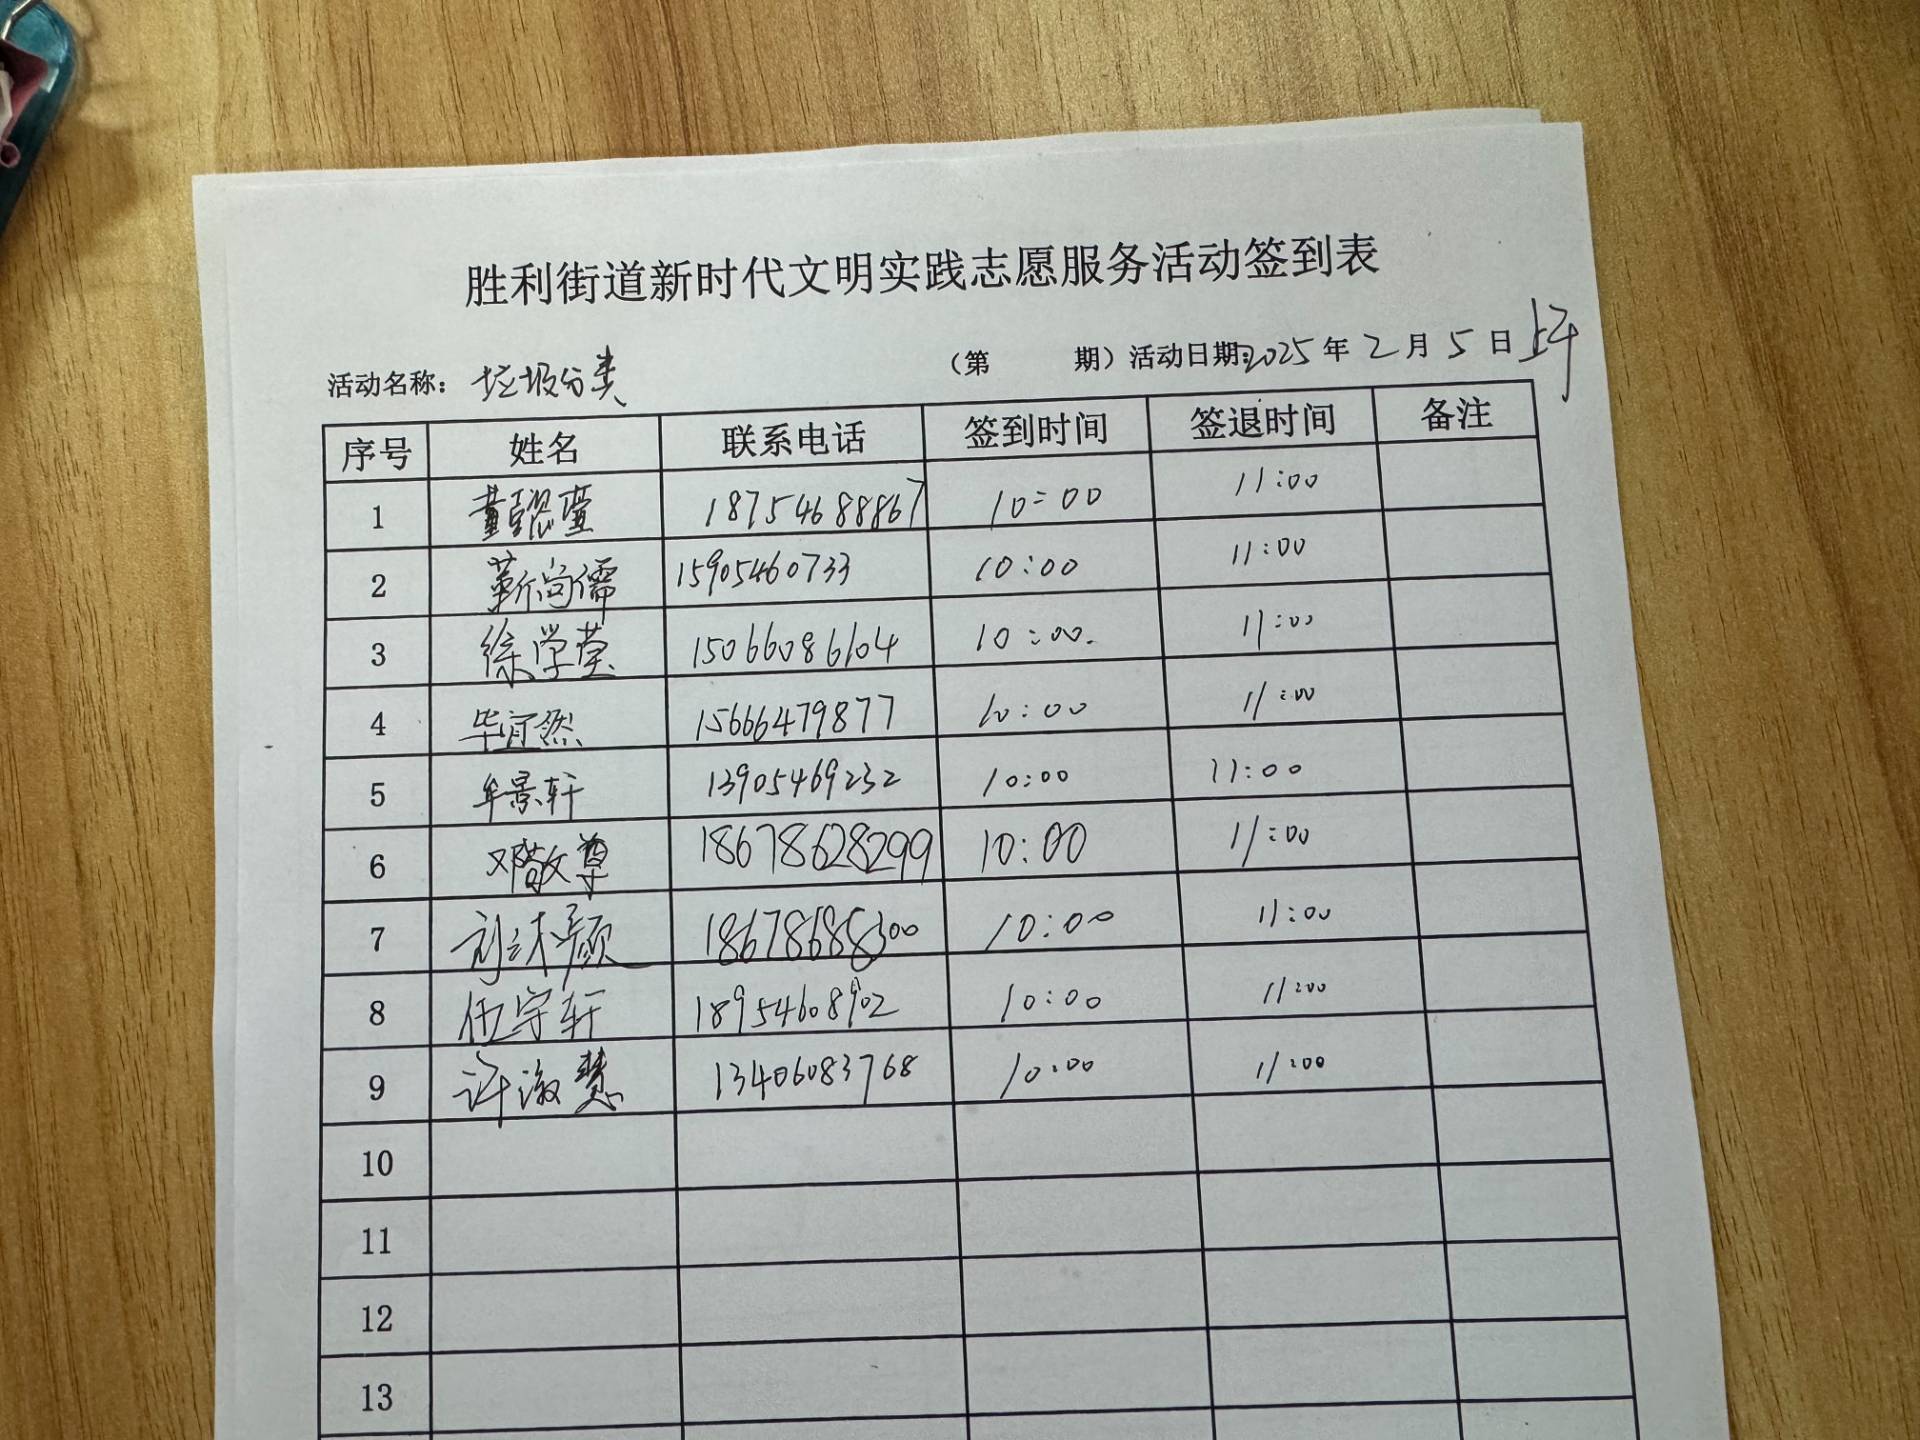 胜利街道新时代文明实践志愿服务活动签到表
活动名称：垃圾分类 （第 期）活动日期：2025年2月5日上午
序号 姓名 联系电话 签到时间 签退时间 备注
1 董懿萱 18754688867 10:00 11:00
2 靳尚儒 15905460733 10:00 11:00
3 徐学莹 15066086104 10:00 11:00
4 毕宜然 15666479877 10:00 11:00
5 牟景轩 13905469232 10:00 11:00
6 邓敬尊 18678628299 10:00 11:00
7 刘沫颜 18678688300 10:00 11:00
8 伍宇轩 18954608902 10:00 11:00
9 许淑慧 13406083768 10:00 11:00
10
11
12
13